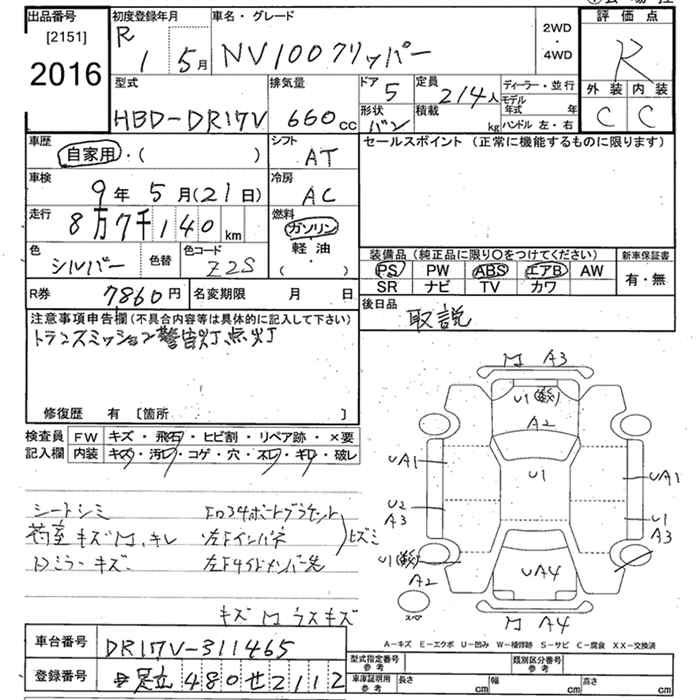 出品番号 初度登録年月 車名・グレード 評価点
[2151] R 1 5月 NV100クリッパー 2WD・4WD R
2016
型式 排気量 ドア 5 定員 214人 ディーラー・並行 外装 内装
HBD-DR17V 660cc 形状 バン 積載 kg モデル年式 年 C C
ハンドル 左・右
車歴 シフト セールスポイント (正常に機能するものに限ります)
自家用・( ) AT
車検 冷房
9年 5月(21日) AC
走行 燃料
8万7千140km ガソリン
軽油
( )
色 シルバー 色替 色コード Z2S
装備品(純正品に限り○をつけてください) 新車保証書
PS PW ABS エアB AW 有・無
SR ナビ TV カワ
R券 7860円 名変期限 月 日 後日品
取説
注意事項申告欄(不具合内容等は具体的に記入して下さい)
トランスミッション警告灯点灯
修復歴 有 [箇所 ]
検査員 FW キズ・飛石・ヒビ割・リペア跡・×要
記入欄 内装 キズ・汚レ・コゲ・穴・スレ・キレ・破レ
M A3
U1
A2
UA1 U1 UA1
U2 U1
A3 A3
U1
A2 UA4
M A4
シートシミ
荷室キズM、キレ 左Fインパネ ヒズミ
Dミラーキズ 左Fサイドメンバー先
キズM ウスキズ
A-キズ E-エクボ U-凹み W-補修跡 S-サビ C-腐食 XX-交換済
車台番号 DR17V-311465
型式指定番号 参考 類別区分番号 参考
登録番号 足立 480せ2112
車庫証明用 参考 長さ cm 幅 cm 高さ cm